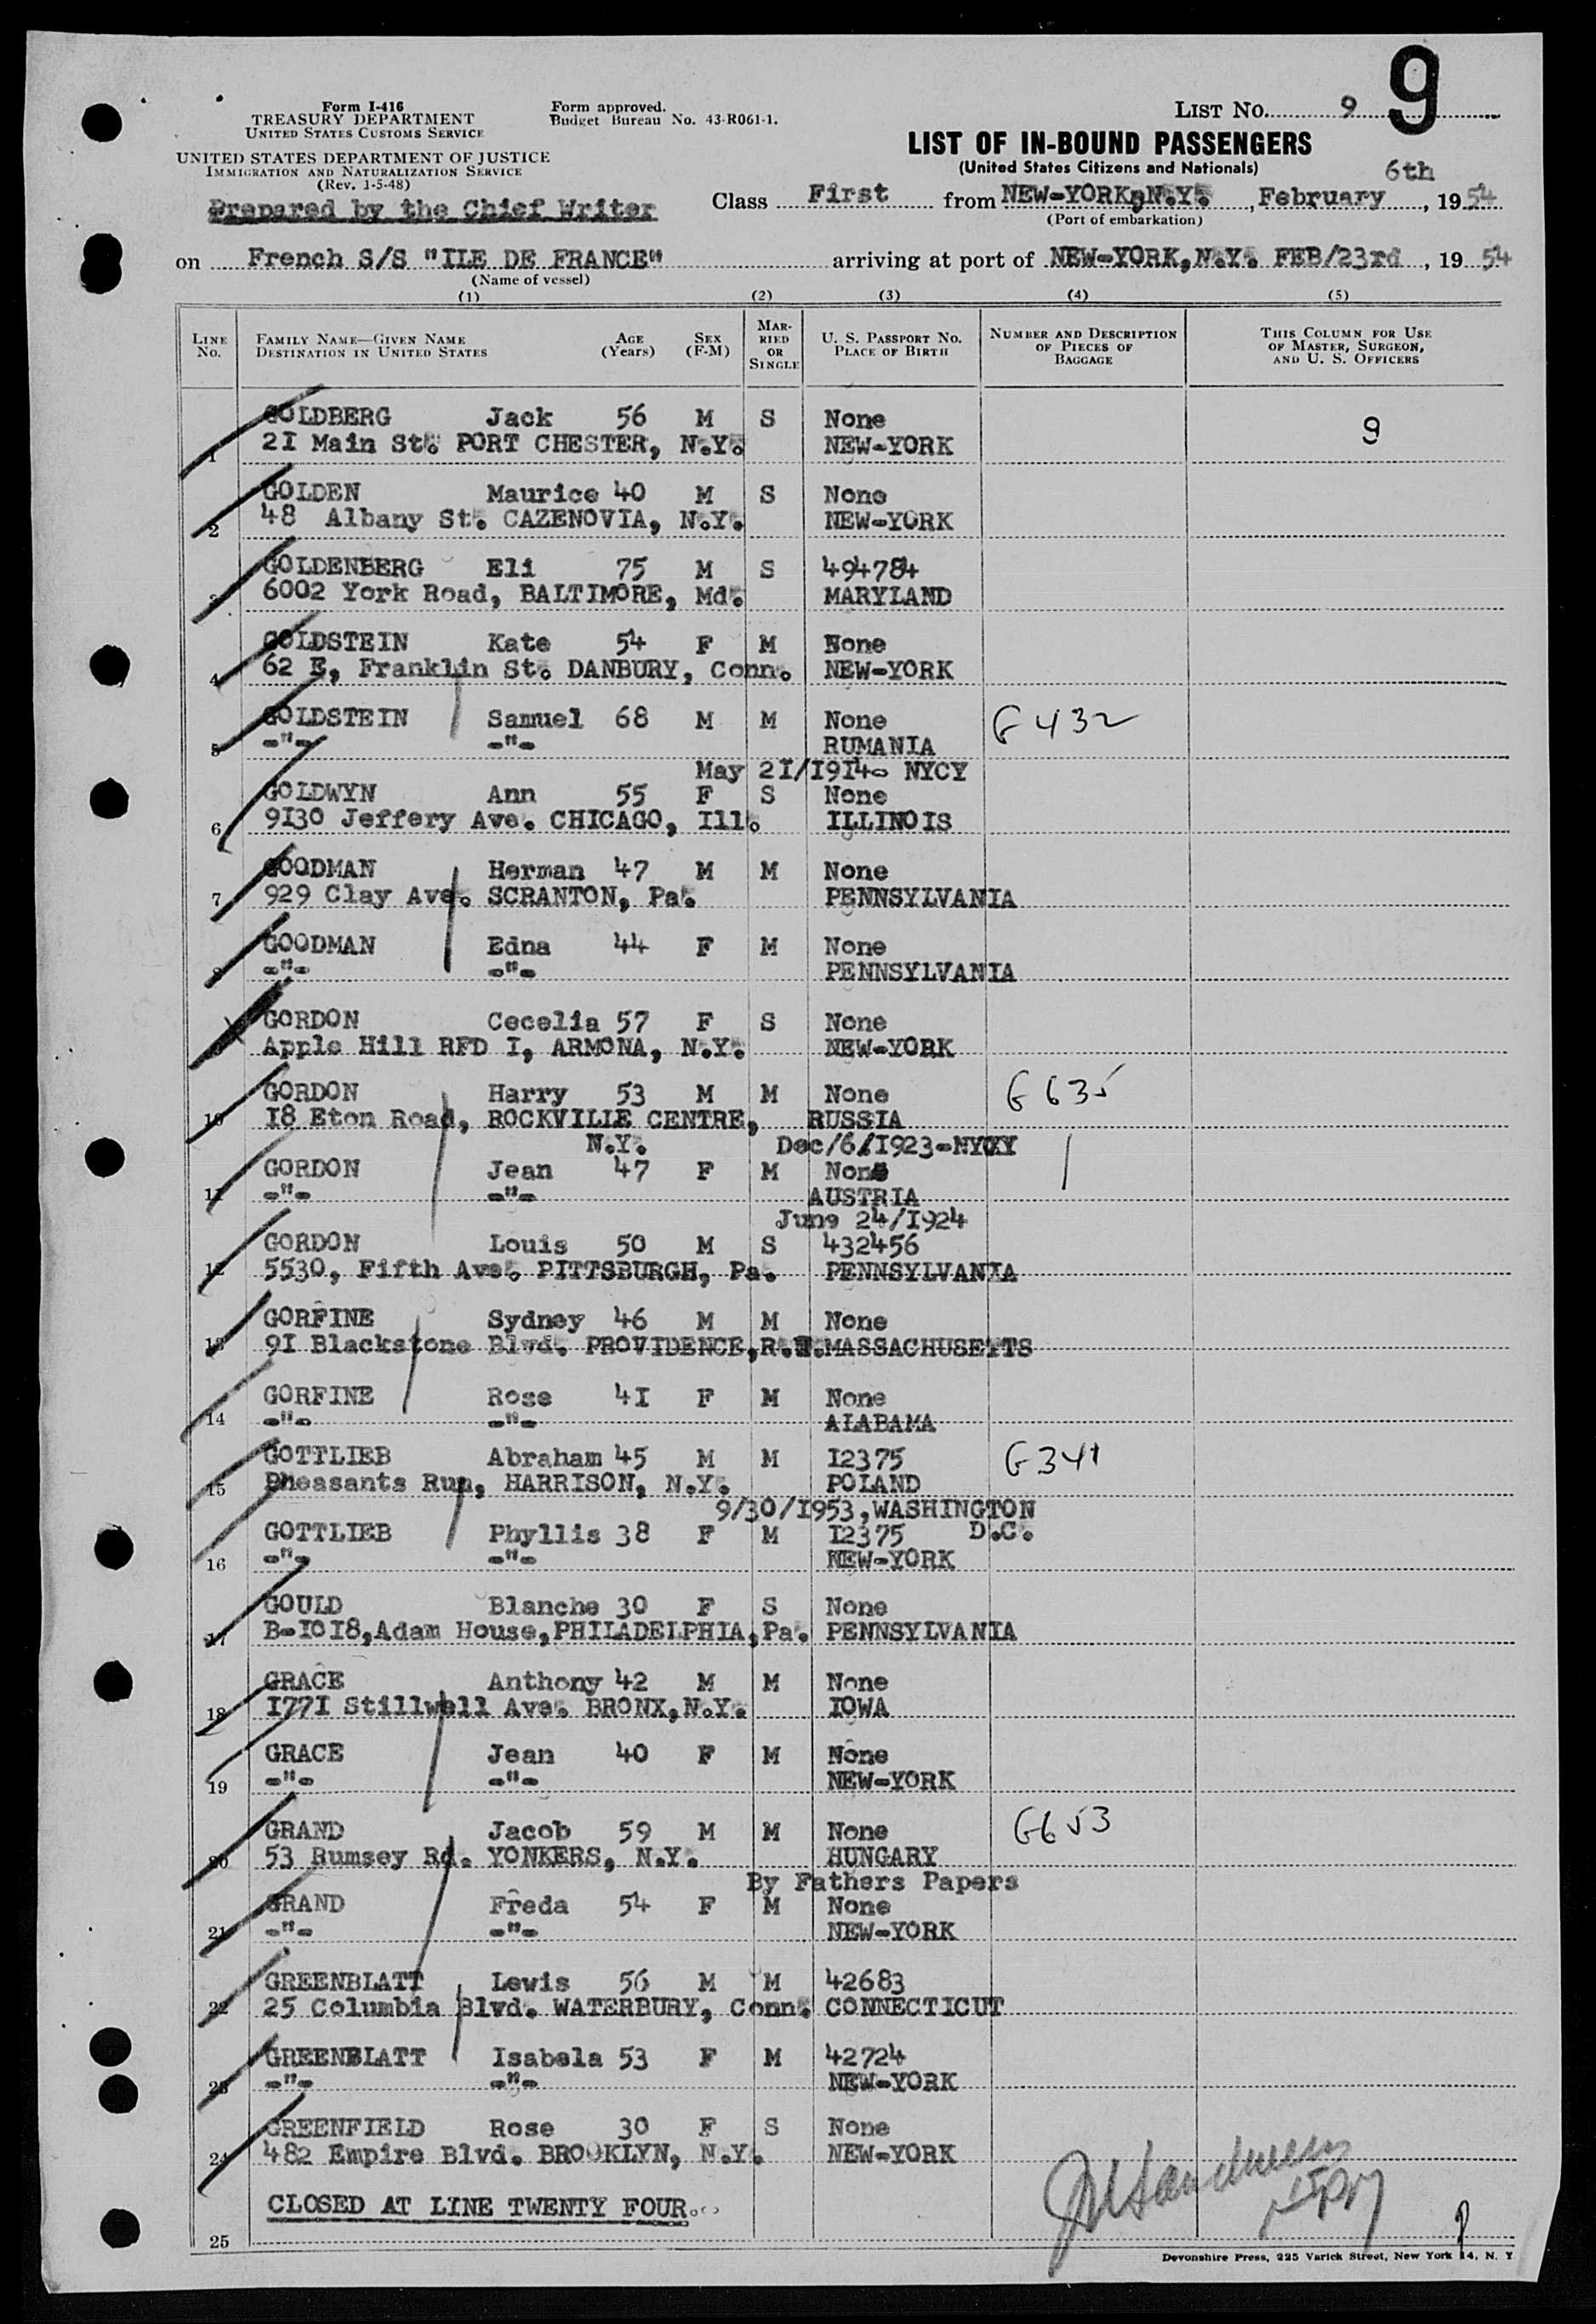 9
Form I-416
TREASURY DEPARTMENT
UNITED STATES CUSTOMS SERVICE
Form approved.
Budget Bureau No. 43-R061-1.
LIST NO. 9
UNITED STATES DEPARTMENT OF JUSTICE
IMMIGRATION AND NATURALIZATION SERVICE
(Rev. 1-5-48)
LIST OF IN-BOUND PASSENGERS
(United States Citizens and Nationals)
Prepared by the Chief Writer
Class First from NEW-YORK,N.Y. , February 6th , 1954
(Port of embarkation)
on French S/S "ILE DE FRANCE" arriving at port of NEW-YORK,N.Y. FEB/23rd , 19 54
(Name of vessel)
(1) (2) (3) (4) (5)
LINE No. FAMILY NAME—GIVEN NAME DESTINATION IN UNITED STATES AGE (Years) SEX (F-M) MARRIED OR SINGLE U. S. PASSPORT NO. PLACE OF BIRTH NUMBER AND DESCRIPTION OF PIECES OF BAGGAGE THIS COLUMN FOR USE OF MASTER, SURGEON, AND U. S. OFFICERS
GOLDBERG Jack 56 M S None 9
1 2I Main St. PORT CHESTER, N.Y. NEW-YORK
GOLDEN Maurice 40 M S None
2 48 Albany St. CAZENOVIA, N.Y. NEW-YORK
GOLDENBERG Eli 75 M S 494784
3 6002 York Road, BALTIMORE, Md. MARYLAND
GOLDSTEIN Kate 54 F M None
4 62 E, Franklin St. DANBURY, Conn. NEW-YORK
GOLDSTEIN Samuel 68 M M None G 432
5 -"- -"- RUMANIA
May 2I/I9I4- NYCY
GOLDWYN Ann 55 F S None
6 9I30 Jeffery Ave. CHICAGO, Ill. ILLINOIS
GOODMAN Herman 47 M M None
7 929 Clay Ave. SCRANTON, Pa. PENNSYLVANIA
GOODMAN Edna 44 F M None
8 -"- -"- PENNSYLVANIA
GORDON Cecelia 57 F S None
Apple Hill RFD I, ARMONA, N.Y. NEW-YORK
GORDON Harry 53 M M None G 635
10 I8 Eton Road, ROCKVILLE CENTRE, RUSSIA
N.Y. Dec/6/I923-NYCY
GORDON Jean 47 F M None
11 -"- -"- AUSTRIA
June 24/I924
GORDON Louis 50 M S 432456
12 5530, Fifth Ave. PITTSBURGH, Pa. PENNSYLVANIA
GORFINE Sydney 46 M M None
13 9I Blackstone Blvd. PROVIDENCE,R.I.MASSACHUSETTS
GORFINE Rose 4I F M None
14 -"- -"- ALABAMA
GOTTLIEB Abraham 45 M M I2375 G 341
15 Pheasants Run, HARRISON, N.Y. POLAND
9/30/I953,WASHINGTON
GOTTLIEB Phyllis 38 F M I2375 D.C.
16 -"- -"- NEW-YORK
GOULD Blanche 30 F S None
17 B-I0I8,Adam House,PHILADELPHIA,Pa. PENNSYLVANIA
GRACE Anthony 42 M M None
18 I77I Stillwell Ave. BRONX,N.Y. IOWA
GRACE Jean 40 F M None
19 -"- -"- NEW-YORK
GRAND Jacob 59 M M None G 653
20 53 Rumsey Rd. YONKERS, N.Y. HUNGARY
By Fathers Papers
GRAND Freda 54 F M None
21 -"- -"- NEW-YORK
GREENBLATT Lewis 56 M M 42683
22 25 Columbia Blvd. WATERBURY, Conn. CONNECTICUT
GREENBLATT Isabela 53 F M 42724
23 -"- -"- NEW-YORK
GREENFIELD Rose 30 F S None
24 482 Empire Blvd. BROOKLYN, N.Y. NEW-YORK
CLOSED AT LINE TWENTY FOUR...
25
Devonshire Press, 225 Varick Street, New York 14, N. Y